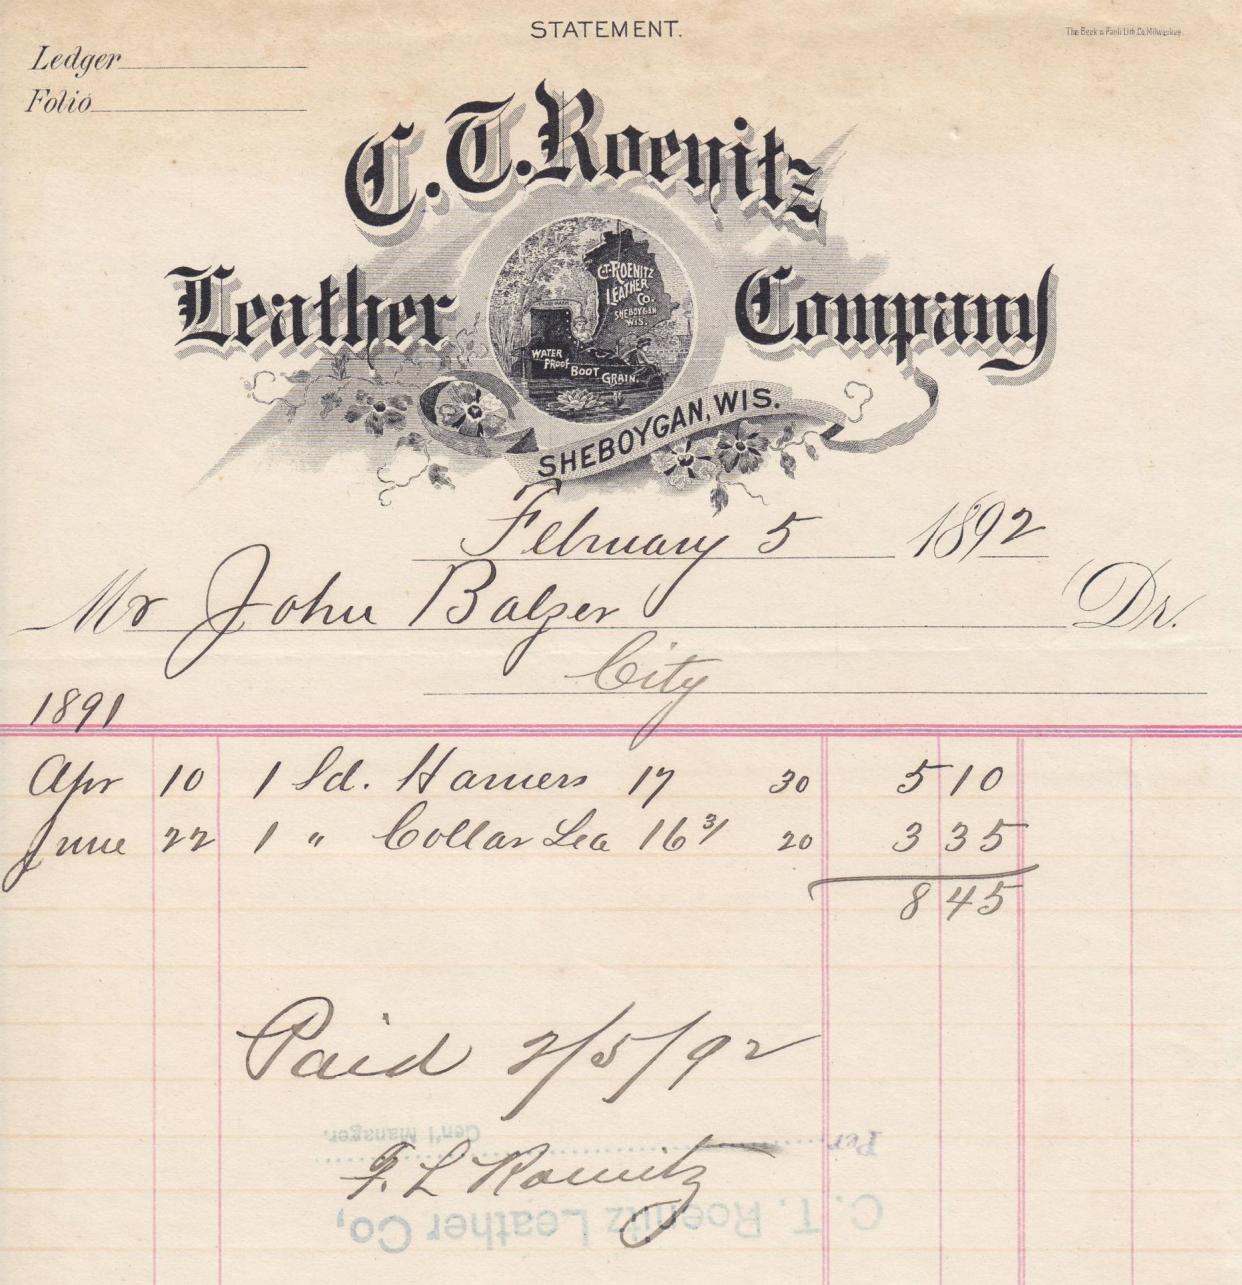 STATEMENT.
The Beck & Pauli Lith. Co. Milwaukee.
Ledger
Folio
C. T. Roenitz
Leather Company
C.T. ROENITZ
LEATHER
CO.
SHEBOYGAN
WIS.
TRADE MARK
WATER
PROOF BOOT GRAIN.
SHEBOYGAN, WIS.
February 5 1892
Mr John Balzer Dr.
City
1891
Apr 10 1 Sd. Harness 17 30 5 10
June 22 1 " Collar Lea 16 3/ 20 3 35
8 45
Paid 2/5/92
Per Gen'l Manager.
F. L. Roenitz
C. T. Roenitz Leather Co,